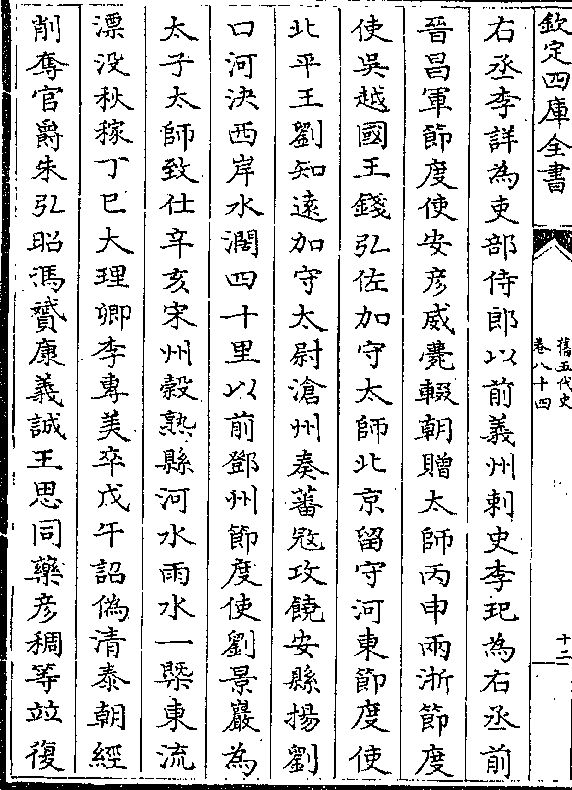 欽定四庫全書
舊五代史
卷八十四
十二
右丞李詳為吏部侍郎以前義州刺史李玘為右丞前
晉昌軍節度使安彦威薨輟朝贈太師丙申兩浙節度
使吳越國王錢弘佐加守太師北京留守河東節度使
北平王劉知遠加守太尉滄州奏蕃㓂攻饒安縣揚劉
口河决西岸水濶四十里以前鄧州節度使劉景巖為
太子太師致仕辛亥宋州糓熟縣河水雨水一槩東流
漂没秋稼丁巳大理卿李專美卒戊午詔偽清泰朝經
削奪官爵朱弘昭馮贇康義誠王思同藥彦稠等竝復